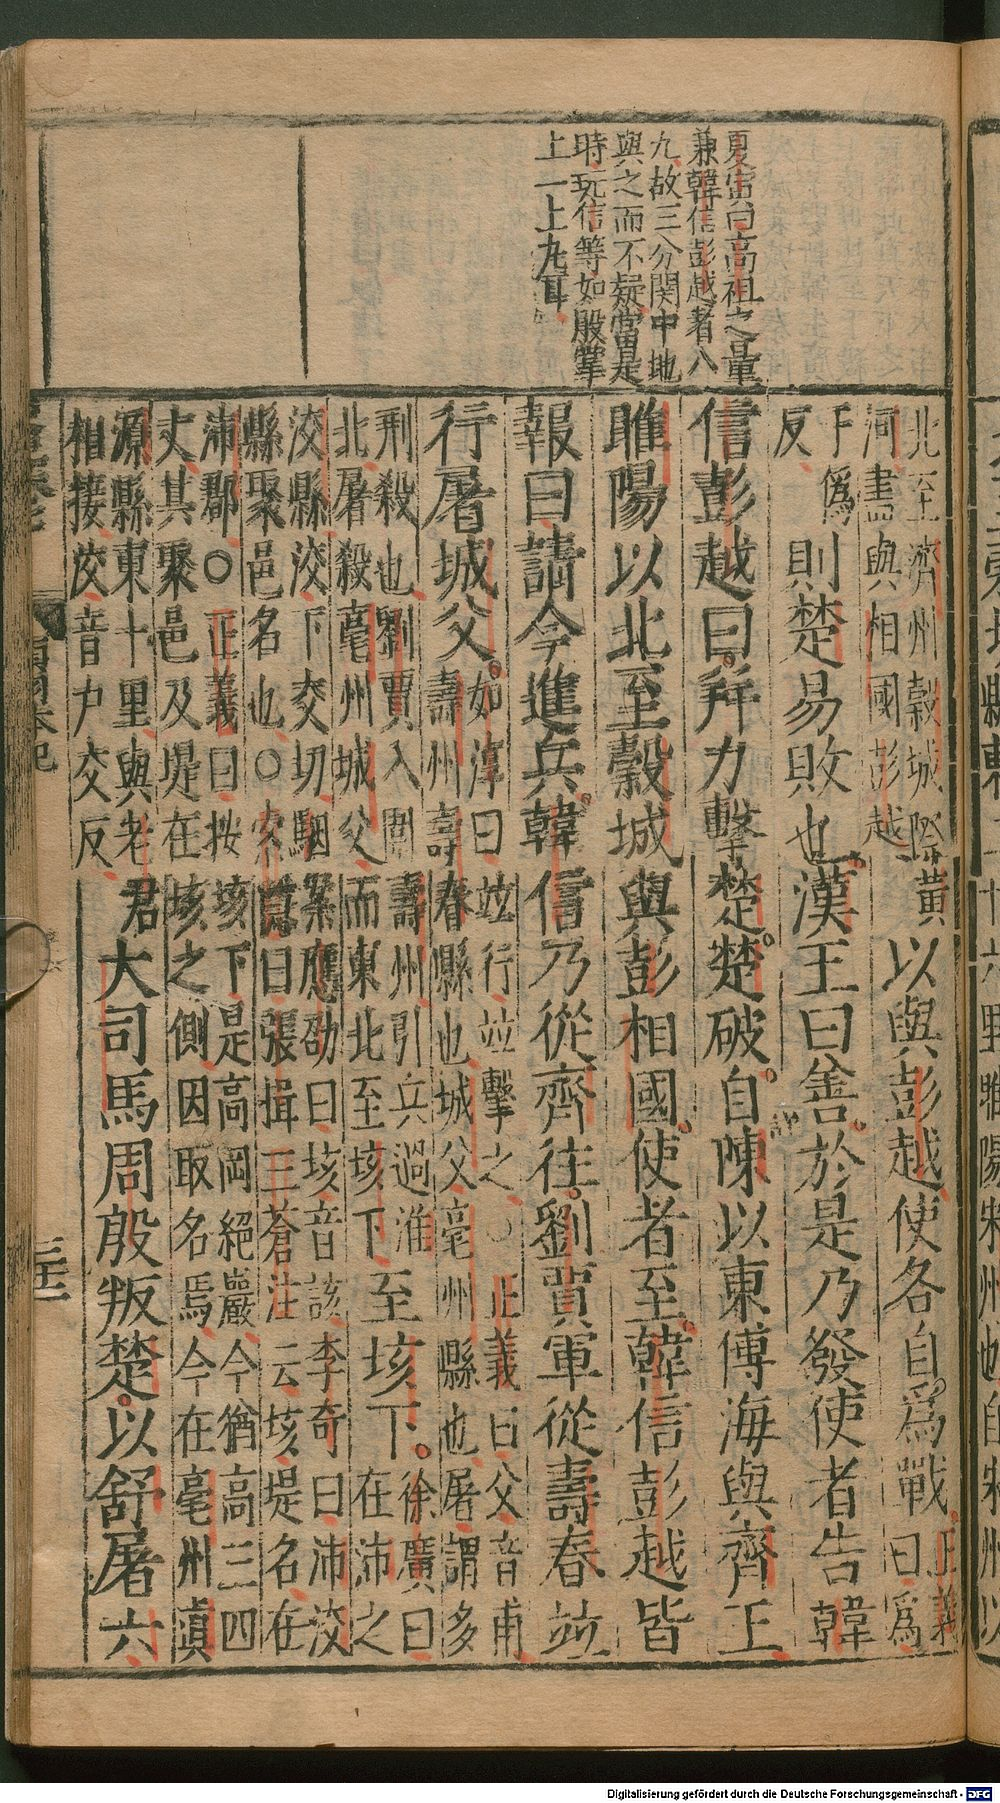 夏寅曰高祖之量
兼韓信彭越者八
九故三分関中地
與之而不疑當是
時玩信等如股掌
上一上九耳
北至濟州穀城際黃
河盡與相國彭越
以與彭越使各自爲戰
正義
曰爲
于僞
反
則楚易敗也漢王曰善於是乃發使者告韓
信彭越曰并力擊楚楚破自陳以東傅海與齊王
睢陽以北至穀城與彭相國使者至韓信彭越皆
報曰請今進兵韓信乃從齊往劉賈軍從壽春並
行屠城父
如淳曰並行並擊之○正義曰父音甫
壽州壽春縣也城父亳州縣也屠謂多
刑殺也劉賈入圍壽州引兵過淮
北屠殺亳州城父而東北至垓下
至垓下
徐廣曰
在沛之
洨縣洨下交切駰案應劭曰垓音該李奇曰沛洨
縣聚邑名也○索隱曰張揖三蒼注云垓堤名在
沛郡○正義曰按垓下是高岡絕巖今猶高三四
丈其聚邑及堤在垓之側因取名焉今在亳州真
源縣東十里與老君
相接洨音戶交反
大司馬周殷叛楚以舒屠六
項羽本紀
Digitalisierung gefördert durch die Deutsche Forschungsgemeinschaft - DFG